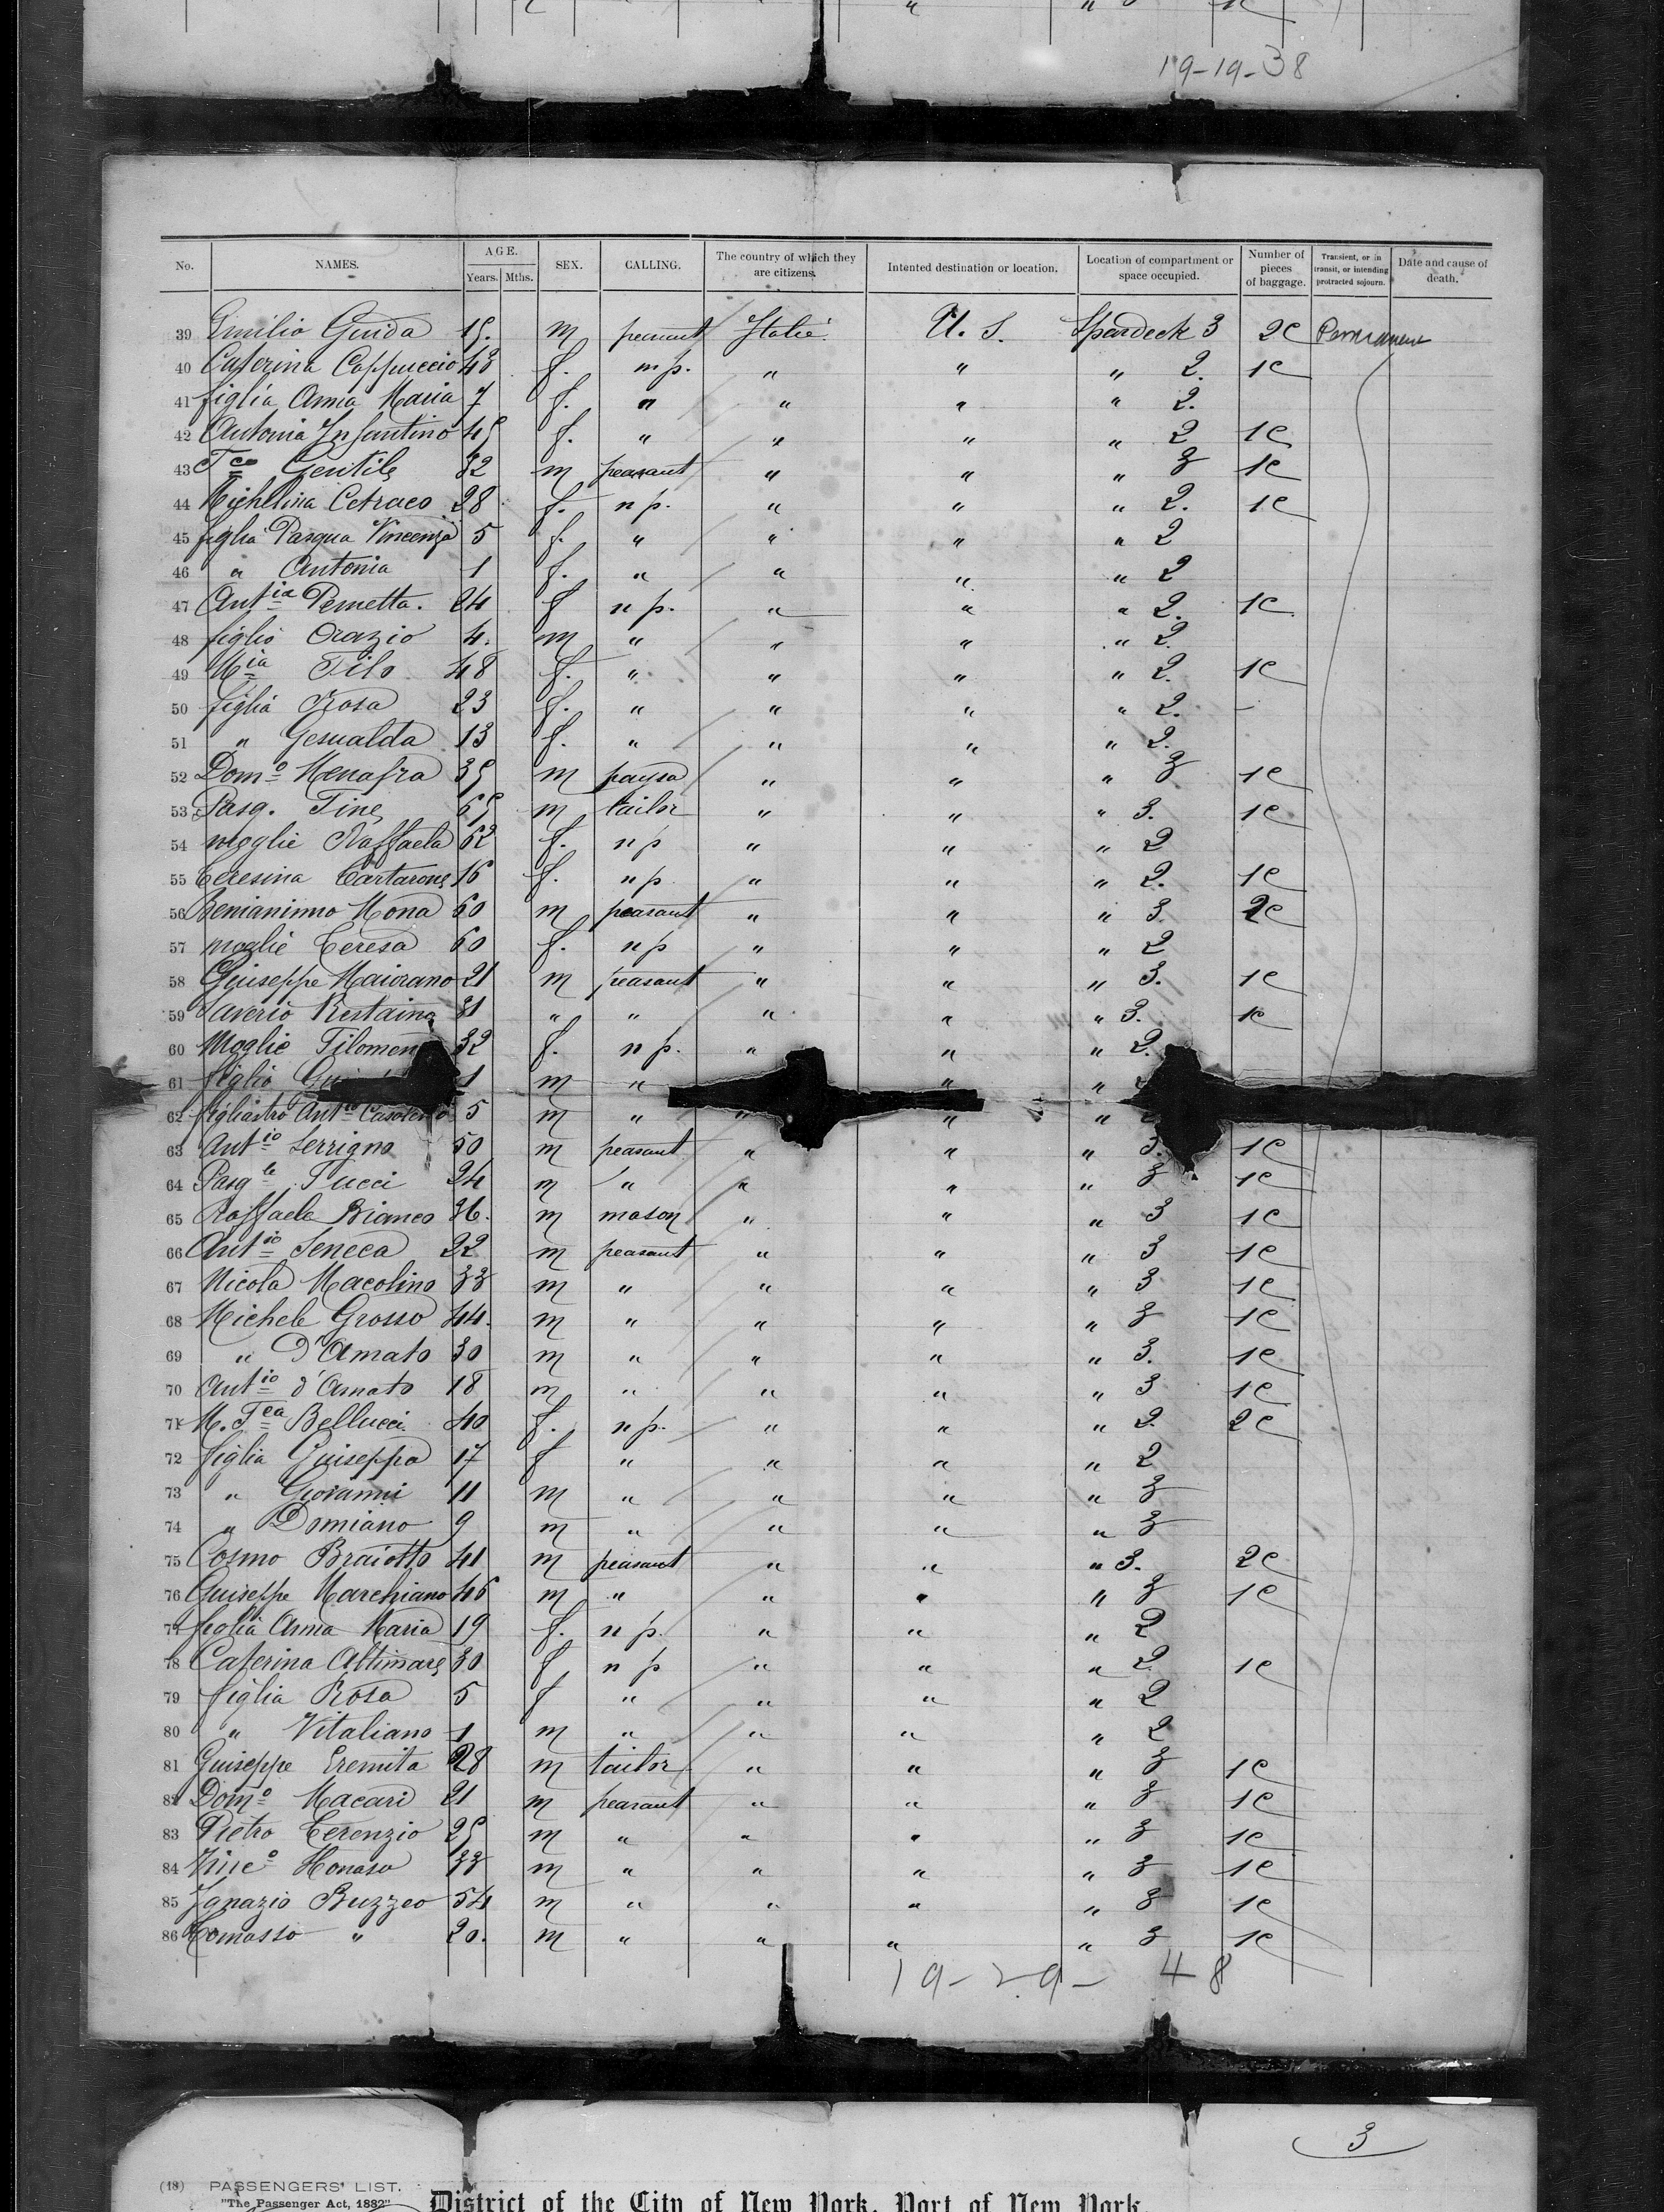 19-19-38
No. NAMES. AGE. Years. Mths. SEX. CALLING. The country of which they are citizens. Intented destination or location. Location of compartment or space occupied. Number of pieces of baggage. Transient, or in transit, or intending protracted sojourn. Date and cause of death.
39 Emilio Guida 15. m peasant Italie U. S. Spardeck 3 2c Permanent
40 Caterina Cappuccio 43 f. n p. " " " 2. 1c
41 figlia Anna Maria 7 f. " " " " 2.
42 Antonia Infantino 45 f. " " " " 2 1c
43 Fco Gentile 32 m peasant " " " 3 1c
44 Michelina Cetraeo 28 f. n p. " " " 2. 1c
45 figlia Pasqua Vincenza 5 f. " " " " 2
46 " Antonia 1 f. " " " " 2
47 Antia Pernetta. 24 f n p. " " " 2. 1c
48 figlio Orazio 4. m " " " " 2
49 Mia Filo 48 f. " " " " 2. 1c
50 figlia Rosa 23 f. " " " " 2. -
51 " Gesualda 13 f. " " " " 2.
52 Domo Menafra 35 m paysa " " " 3 1c
53 Pasq. Fine 65 m tailor " " " 3. 1c
54 moglie Raffaela 62 f. n p " " " 2
55 Teresina Cartarone 16 f. n p " " " 2. 1c
56 Benianimo Mona 60 m peasant " " " 3. 2c
57 moglie Teresa 60 f. n p " " " 2
58 Guiseppe Maiorano 21 m peasant " " " 3. 1c
59 Saverio Restaino 31 " " " " " 3. 1c
60 Moglie Filomen 32 f. n p. " " " 2.
61 figlio 1 m " " "
62 figliastro Antio 5 m " " " "
63 Antio Serrigno 50 m peasant " " " 3. 1c
64 Pasqle Tucci 24 m " " " " 3 1c
65 Raffaele Bianco 36. m mason " " " 3 1c
66 Antio Seneca 22 m peasant " " " 3 1c
67 Nicola Macolino 33 m " " " " 3 1c
68 Michele Grosso 44. m " " " " 3 1c
69 " D'Amato 30 m " " " " 3. 1c
70 Antio d'Amato 18 m " " " " 3 1c
71 M. Fca Bellucci 40 f. n p. " " " 2 2c
72 figlia Guiseppa 17 f " " " " 2
73 " Giovanni 11 m " " " " 3
74 " Damiano 9 m " " " " 3
75 Cosmo Braiotto 41 m peasant " " " 3. 2c
76 Guiseppe Marchiano 46 m " " " " 3 1c
77 figlia Anna Maria 19 f. n p. " " " 2
78 Caterina Altimare 30 f n p " " " 2 1c
79 figlia Rosa 5 f " " " " 2
80 " Vitaliano 1 m " " " " 2
81 Guiseppe Eremita 28 m tailor " " " 3 1c
82 Domo Macari 21 m peasant " " " 3 1c
83 Pietro Terenzio 25 m " " " " 3 1c
84 Vinco Monaso 33 m " " " " 3 1c
85 Ignazio Buzzeo 54 m " " " " 3 1c
86 Tomasso " 20. m " " " " 3 1c
19-29-48
3
(18) PASSENGERS' LIST.
"The Passenger Act, 1882"
District of the City of New York, Port of New York.